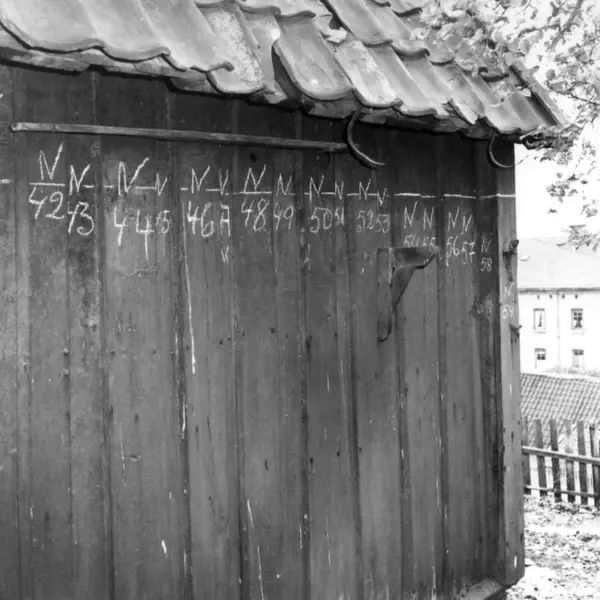 N N N N N N N N N N N N N N N N N N
42 43 44 45 46 48 49 50 51 52 53 54 55 56 57 58